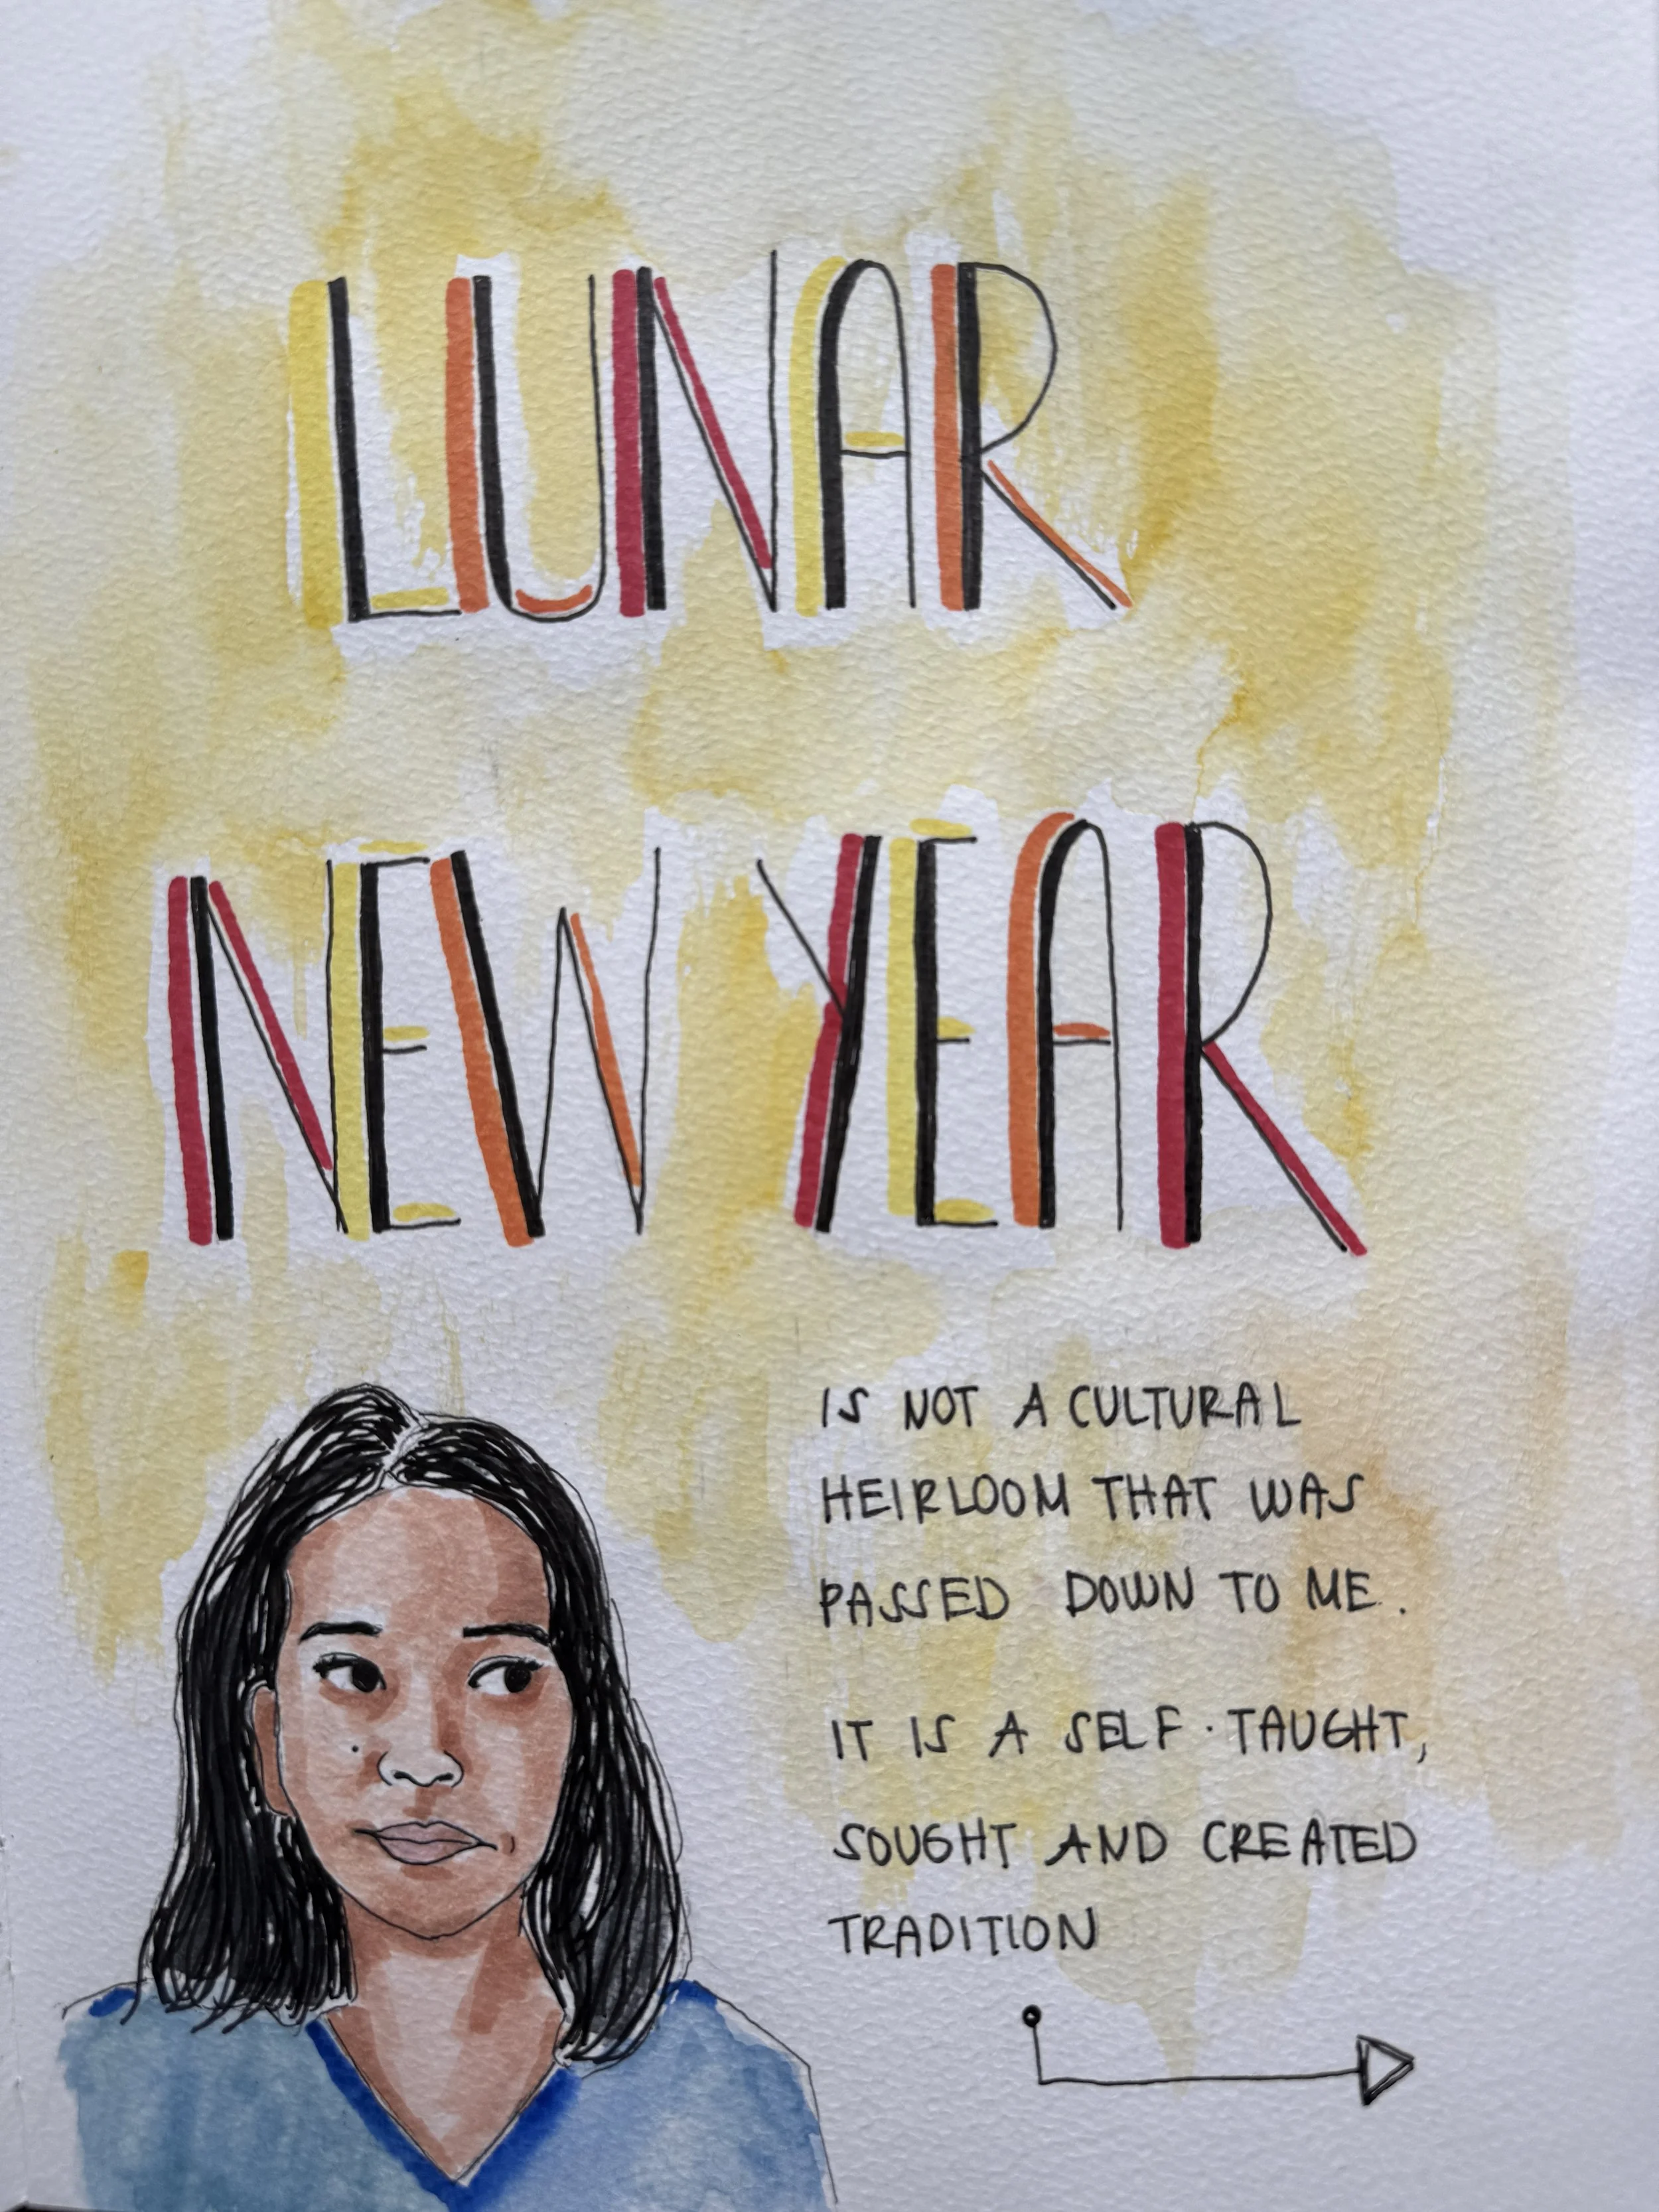 LUNAR
NEW YEAR
IS NOT A CULTURAL
HEIRLOOM THAT WAS
PASSED DOWN TO ME.
IT IS A SELF-TAUGHT,
SOUGHT AND CREATED
TRADITION